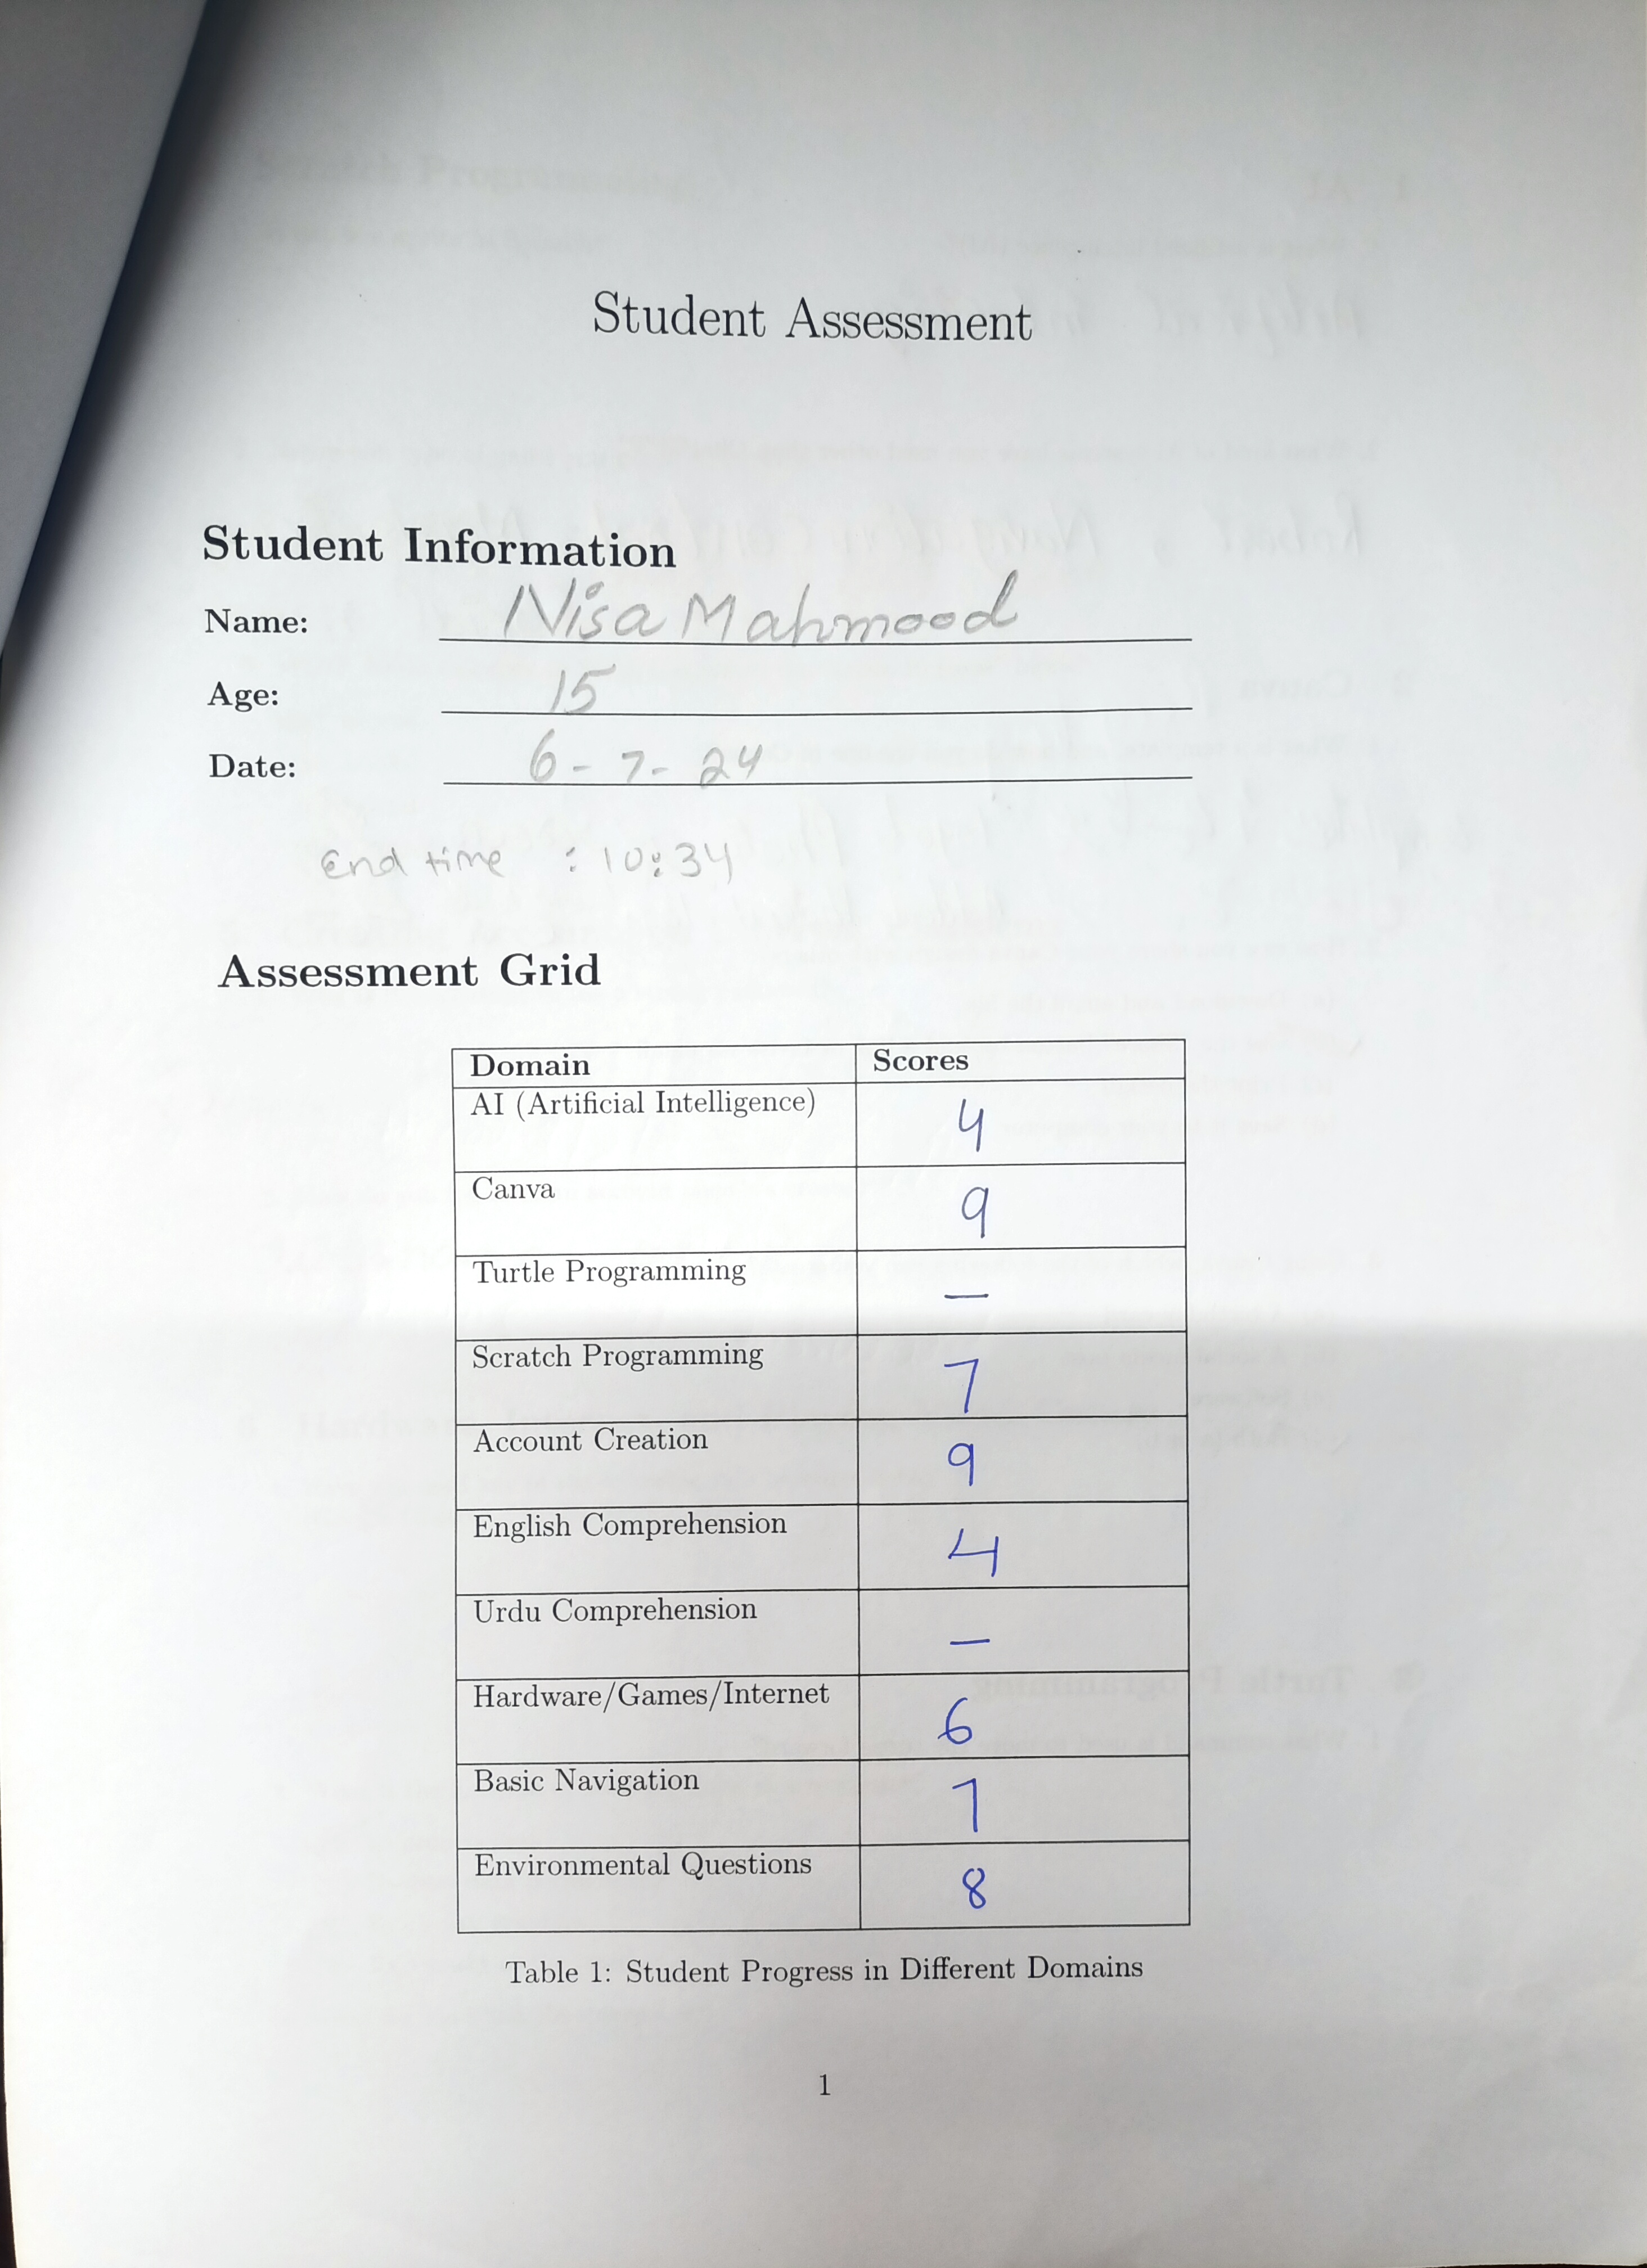 Student Assessment
Student Information
Name: Nisa Mahmood
Age: 15
Date: 6-7-24
End time : 10:34
Assessment Grid
Domain Scores
AI (Artificial Intelligence) 4
Canva 9
Turtle Programming —
Scratch Programming 7
Account Creation 9
English Comprehension 4
Urdu Comprehension —
Hardware/Games/Internet 6
Basic Navigation 7
Environmental Questions 8
Table 1: Student Progress in Different Domains
1